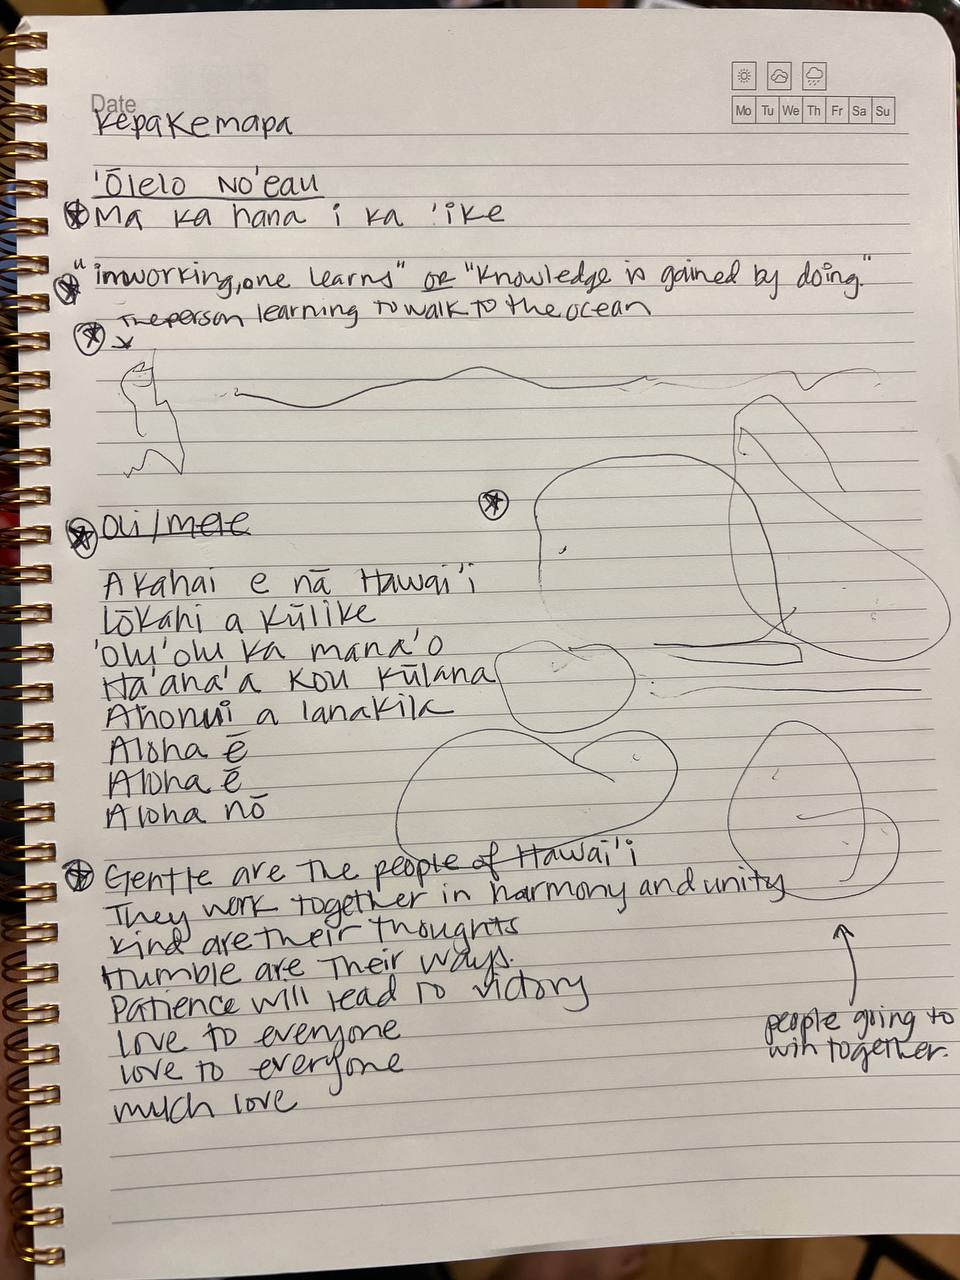 Date
Mo Tu We Th Fr Sa Su
Kepakemapa
'Ōlelo No'eau
Ma ka hana i ka 'ike
"in working, one learns" or "knowledge is gained by doing."
The person learning to walk to the ocean
Oli/mele
Akahai e nā Hawai'i
Lōkahi a Kūlike
'Olu'olu ka mana'o
Ha'aha'a kou kūlana
Ahonui a lanakila
Aloha ē
Aloha ē
Aloha nō
Gentle are the people of Hawai'i
They work together in harmony and unity
Kind are their thoughts
Humble are their ways.
Patience will lead to victory
Love to everyone
Love to everyone
much love
people going to
win together.